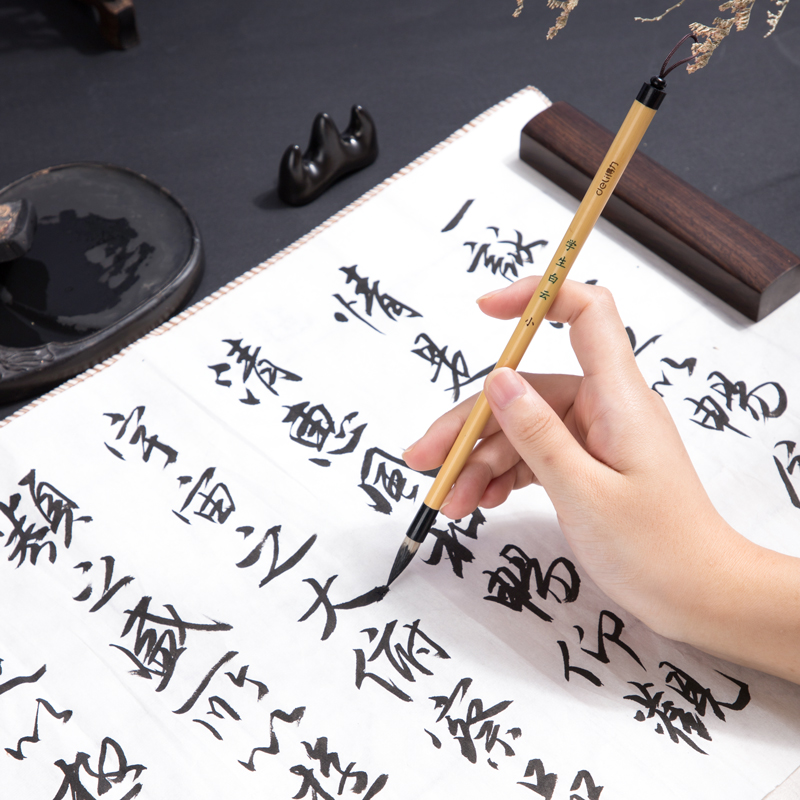 deli得力
学生白云 小
一詠
以暢
情是
清惠風和暢仰觀
宇宙之大俯察品
類之盛所以遊
以極